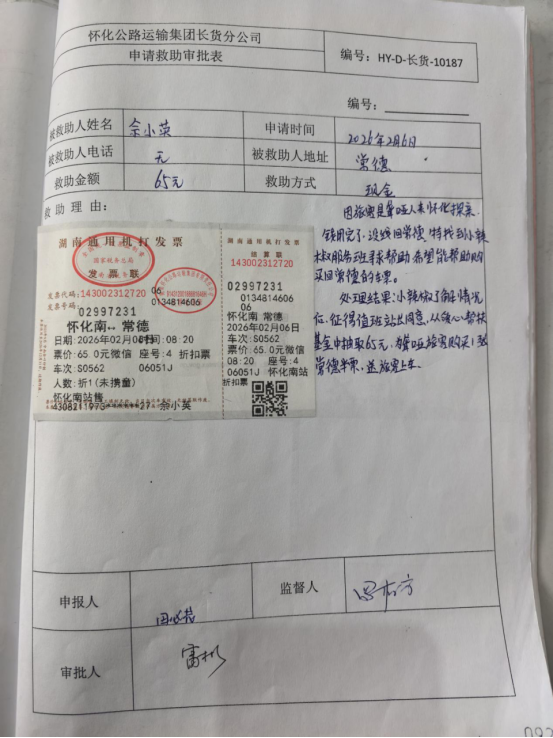 怀化公路运输集团长货分公司
申请救助审批表
编号：HY-D-长货-10187
编号：
被救助人姓名 佘小英 申请时间 2026年2月6日
被救助人电话 无 被救助人地址 常德
救助金额 65元 救助方式 现金
救助理由：
因旅客是聋哑人来怀化探亲
钱用完了，没钱回常德，特找到小辣
椒服务班寻求帮助希望能帮助购
买回常德的车票。
处理结果：小辣椒了解情况
后，征得值班站长同意，从暖心帮扶
基金中抽取65元，为聋哑旅客购买1张
常德车票，送旅客上车。
湖南通用机打发票
国家税务总局
发票联
发票代码：143002312720
发票号码：
02997231
06
0134814606
怀化南-- 常德
日期：2026年02月06日 时间：08:20
票价：65.0元微信 座号：4 折扣票
车次：S0562 06051J
人数：折1(未携童)
怀化南站售
27 佘小英
湖南通用机打发票
结算联
143002312720
02997231
0134814606
06
怀化南 常德
2026年02月06日
车次：S0562
票价：65.0元微信
08:20 座号：4 折扣票
06051J 怀化南站
申报人
监督人
审批人 雷彬